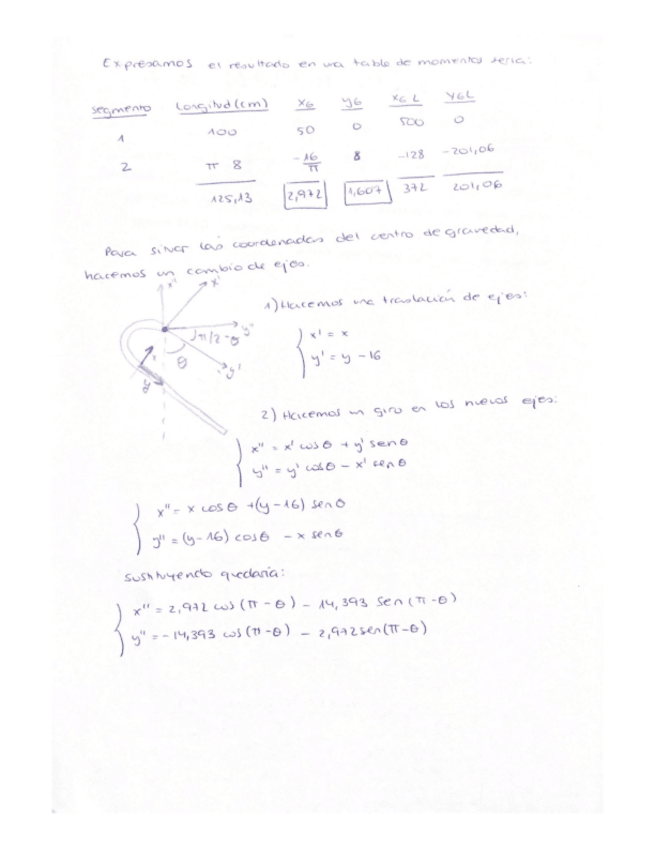 Expresamos el resultado en una tabla de momentos seria:
segmento Longitud (cm) XG YG XG L YGL
1 100 50 0 500 0
2 π 8 -16/π 8 -128 -201,06
125,13 2,972 1,607 372 201,06
Para situar las coordenadas del centro de gravedad,
hacemos un cambio de ejes.
x" x'
1) Hacemos una traslación de ejes:
y"
π/2 - θ
x' = x
θ
y'
y' = y - 16
y
2) Hacemos un giro en los nuevos ejes:
x" = x' cos θ + y' sen θ
y" = y' cos θ - x' sen θ
x" = x cos θ + (y - 16) sen θ
y" = (y - 16) cos θ - x sen θ
Sustituyendo quedaria:
x" = 2,972 cos (π - θ) - 14,393 sen (π - θ)
y" = - 14,393 cos (π - θ) - 2,972 sen (π - θ)